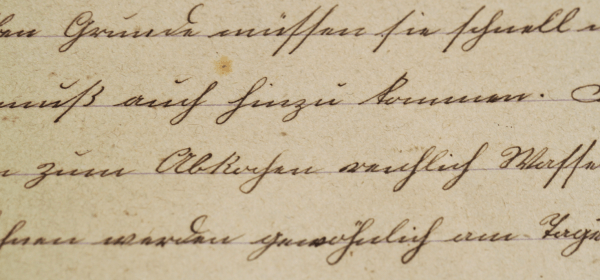 en Grunde müssen sie schnell
muß auch hinzu kommen.
zum Abkochen reichlich Wasse
hnen werden gewöhnlich am Tage